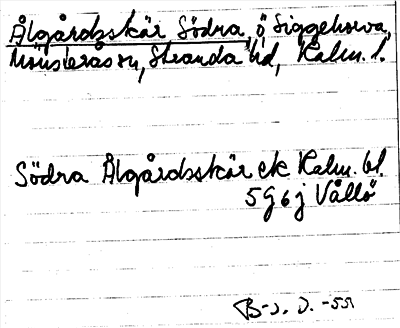 Ålgårdsskär Södra, ö Siggehorva,
Mönsterås sn, Stranda hd, Kalm. l.
Södra Ålgårdsskär ek Kalm. bl.
5 G 6 j Vållö
B-s. D. -55